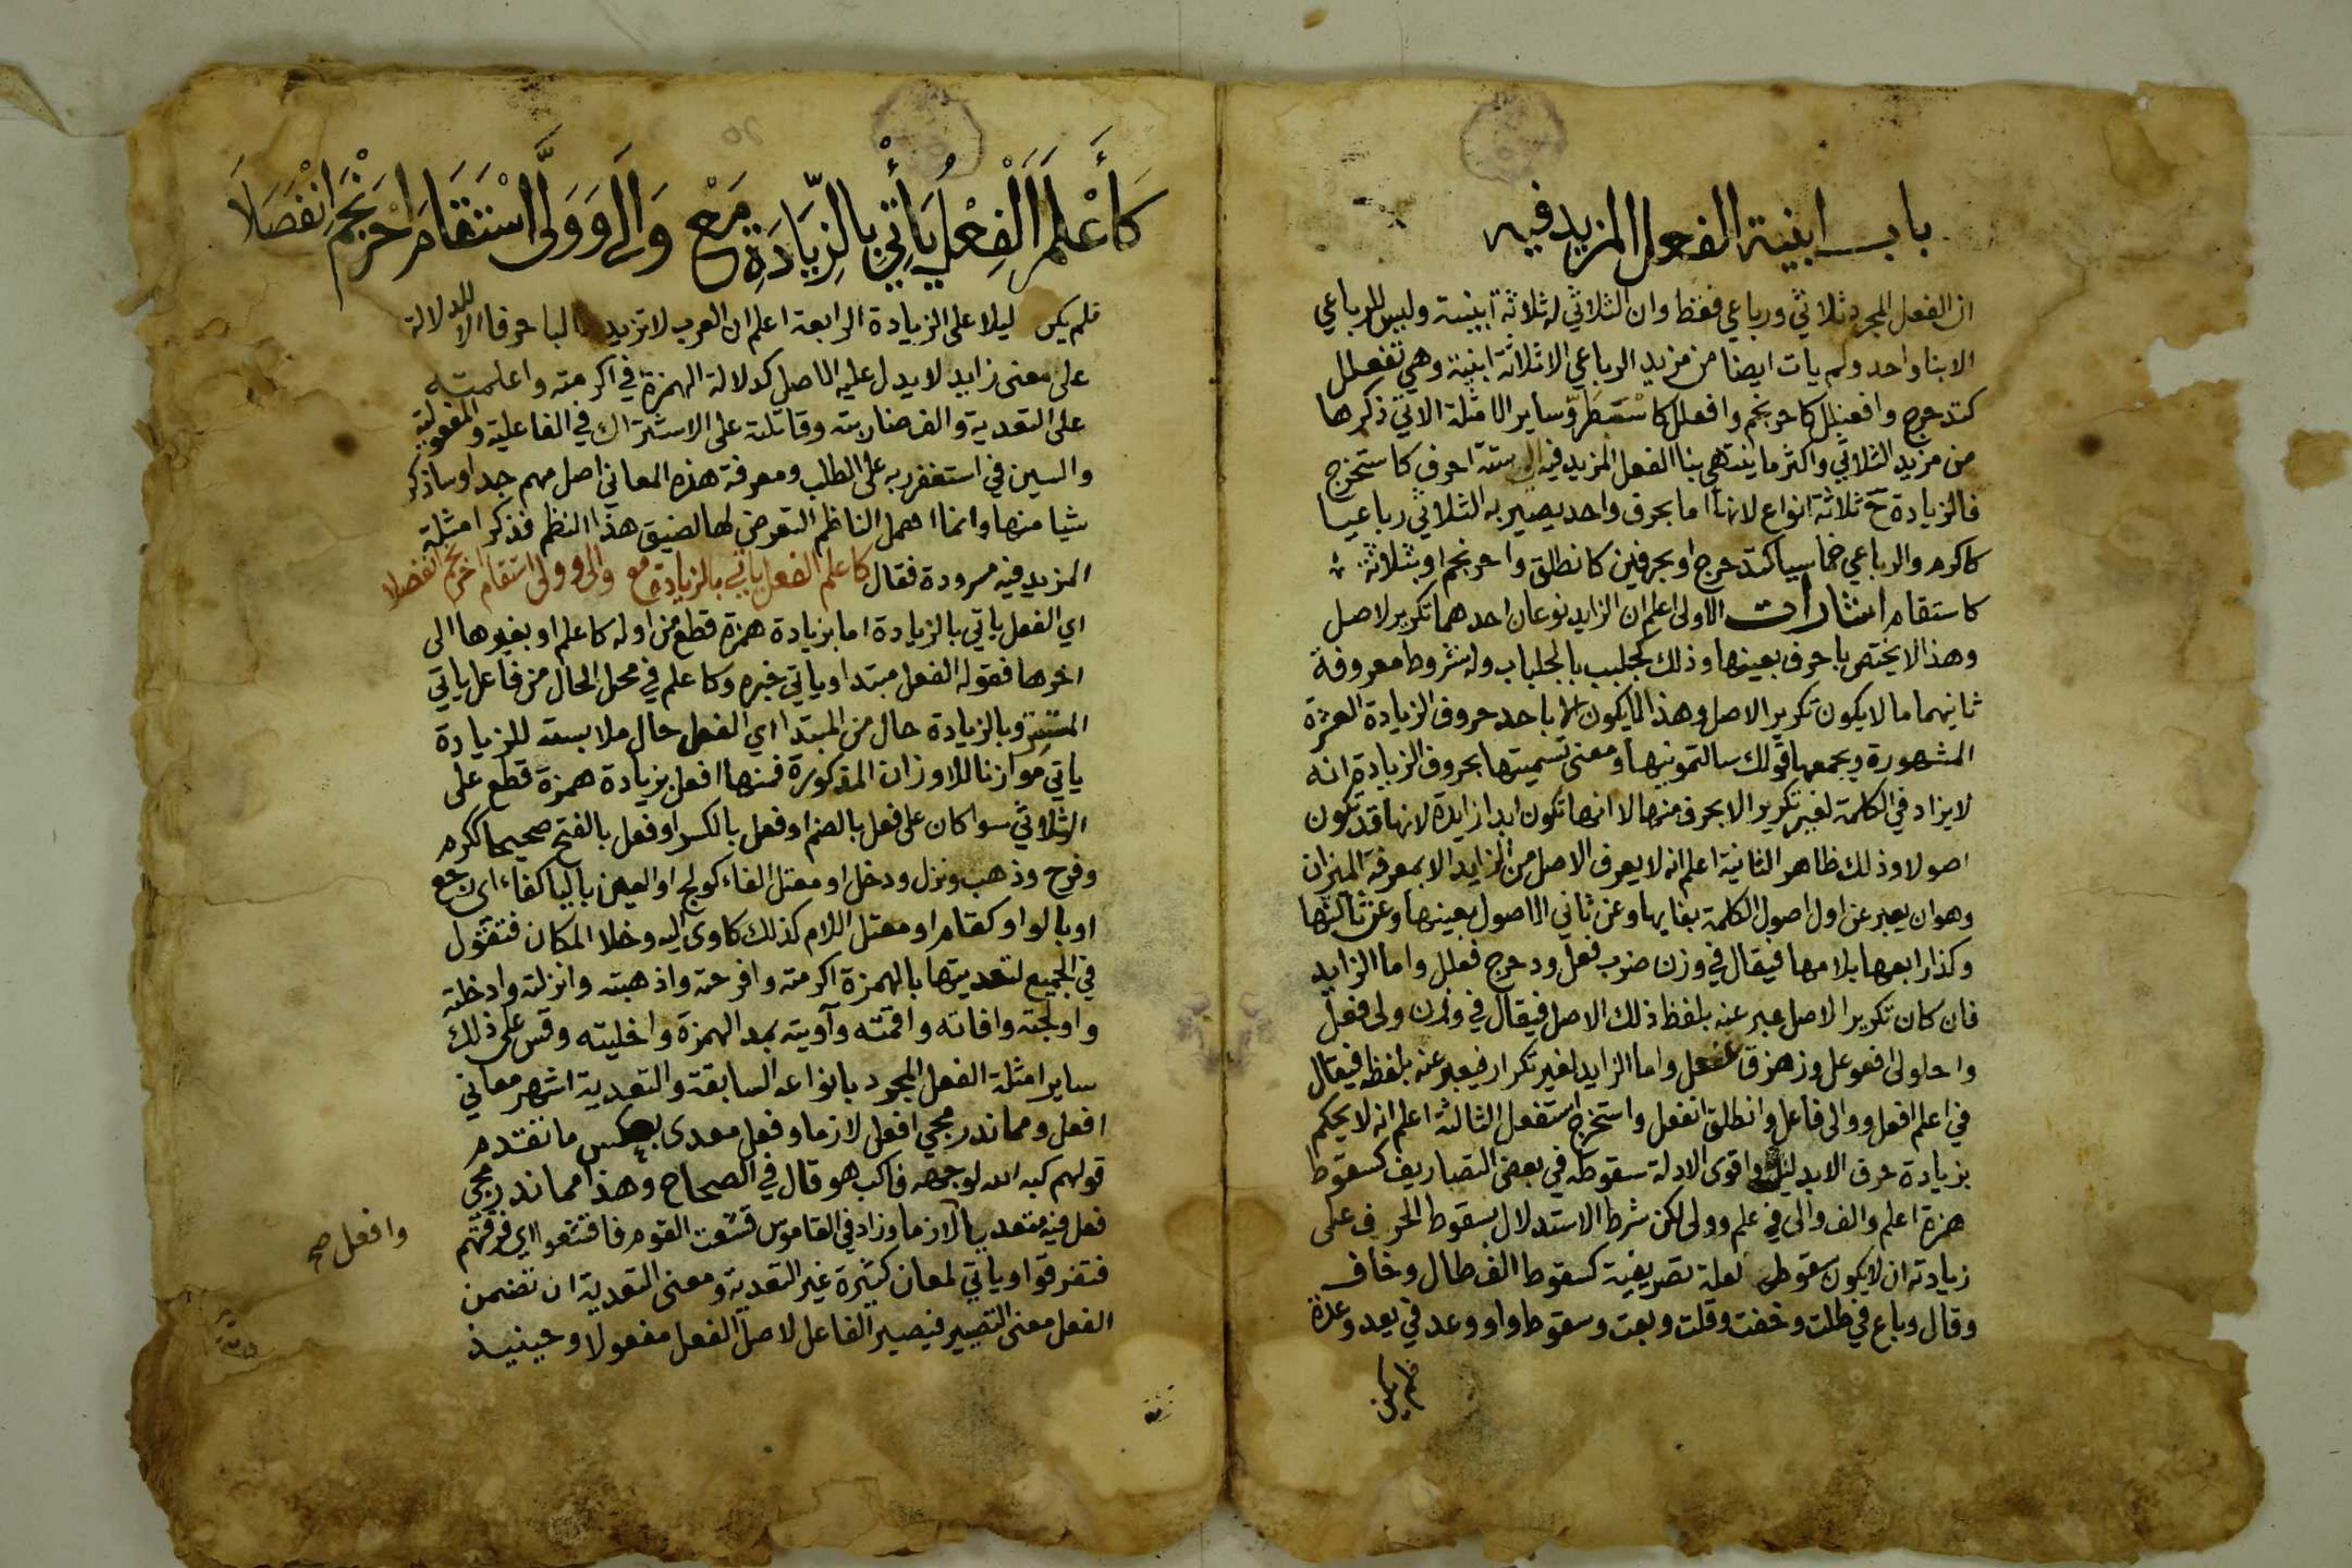 باب ابنية الفعل المزيد فيه
ان الفعل المجرد ثلاثي ورباعي فقط وان الثلاثي له ثلاثة ابنية وليس للرباعي
الابنا واحد ولم يات ايضا من مزيد الرباعي الا ثلاثة ابنية وهي تفعلل
كتدحرج وافعنلل كاحرنجم وافعلل كاسبطر وساير الامثلة الاتي ذكرها
من مزيد الثلاثي واكثر ما ينتهي بنا الفعل المزيد فيه الى ستة احرف كاستخرج
فالزيادة ح ثلاثة انواع لانها اما بحرف واحد يصير به الثلاثي رباعيا
كاكرم والرباعي خماسيا كتدحرج او بحرفين كانطلق واحرنجم او بثلاثة
كاستقام اشارات الاولى اعلم ان الزايد نوعان احدهما تكرير لاصل
وهذا لا يختص باحرف بعينها وذلك كجلبب بالجلباب وله شروط معروفة
ثانيهما ما لا يكون تكرير الاصل وهذا لا يكون الا باحد حروف الزيادة العشرة
المشهورة ويجمعها قولك سالتمونيها ومعنى تسميتها بحروف الزيادة انه
لا يزاد في الكلمة لغير تكرير الا بحرف منها لا انها تكون ابدا زايدة لانها قد تكون
اصولا وذلك ظاهر الثانية اعلم انه لا يعرف الاصل من الزايد الا بمعرفة الميزان
وهو ان يعبر عن اول اصول الكلمة بفايها وعن ثاني الاصول بعينها وعن ثالثها
وكذا رابعها بلامها فيقال في وزن ضرب فعل ودحرج فعلل واما الزايد
فان كان تكرير الاصل عبر عنه بلفظ ذلك الاصل فيقال في وزن ولى فعل
واحلولى افعوعل وزهزق عفعل واما الزايد لغير تكرار فيعبر عنه بلفظه فيقال
في اعلم افعل ووالى فاعل وانطلق انفعل واستخرج استفعل الثالثة اعلم انه لا يحكم
بزيادة حرف الا بدليل واقوى الادلة سقوطه في بعض التصاريف كسقوط
همزة اعلم والف والى في علم وولى لكن شرط الاستدلال بسقوط الحرف على
زيادته ان لا يكون سقوطه لعلة تصريفية كسقوط الف طال وخاف
وقال وباع في طلت وخفت وقلت وبعت وسقوط واو وعد في يعد وعدة
فلم يكن
كَأَعْلَمَ الْفِعْلُ يَأْتِي بِالزِّيَادَةِ مَعْ وَالَى وَوَلَّى اسْتَقَامَ احْرَنْجَمَ انْفَصَلَا
فلم يكن ليلا على الزيادة الرابعة اعلم ان العرب لا تزيد غالبا حرفا الا للدلالة
على معنى زايد لا يدل عليه الاصل كدلالة الهمزة في اكرمته واعلمته
على التعدية والف ضاربته وقاتلته على الاشتراك في الفاعلية والمفعولية
والسين في استغفر ربه على الطلب ومعرفة هذه المعاني اصل مهم جدا وساذكر
شيا منها وانما اهمل الناظم التعرض لها لضيق هذا النظم فذكر امثلة
المزيد فيه مسرودة فقال كاعلم الفعل ياتي بالزيادة مع والى وولى استقام احرنجم انفصلا
اي الفعل ياتي بالزيادة اما بزيادة همزة قطع من اوله كاعلم او بغيرها الى
اخرها فقوله الفعل مبتدا وياتي خبره وكاعلم في محل الحال من فاعل ياتي
المستتر وبالزيادة حال من المبتدا اي الفعل حال ملابسته للزيادة
ياتي موازنا للاوزان المذكورة فمنها افعل بزيادة همزة قطع على
الثلاثي سوا كان على فعل بالضم او فعل بالكسر او فعل بالفتح صحيحا ككرم
وفرح وذهب ونزل ودخل او معتل الفاء كولج او العين باليا كفاء اي رجع
او بالواو كقام او معتل اللام كذلك كاوى اليه وخلا المكان فتقول
في الجميع لتعديتها بالهمزة اكرمته وافرحته واذهبته وانزلته وادخلته
واولجته وافاته واقمته وآويته بمد الهمزة واخليته وقس على ذلك
ساير امثلة الفعل المجرد بانواعه السابقة والتعدية اشهر معاني
افعل ومما ندر مجي افعل لازما وفعل معدى بعكس ما تقدم
قولهم كبه الله لوجهه فاكب هو قال في الصحاح وهذا مما ندر مجي
فعل فيه متعديا لازما وزاد في القاموس قشعت القوم فاقشعوا اي فرقتهم
وافعل صح
فتفرقوا وياتي لمعان كثيرة غير التعدية ومعنى التعدية ان تضمن
الفعل معنى التصيير فيصير الفاعل لاصل الفعل مفعولا وحينيذ